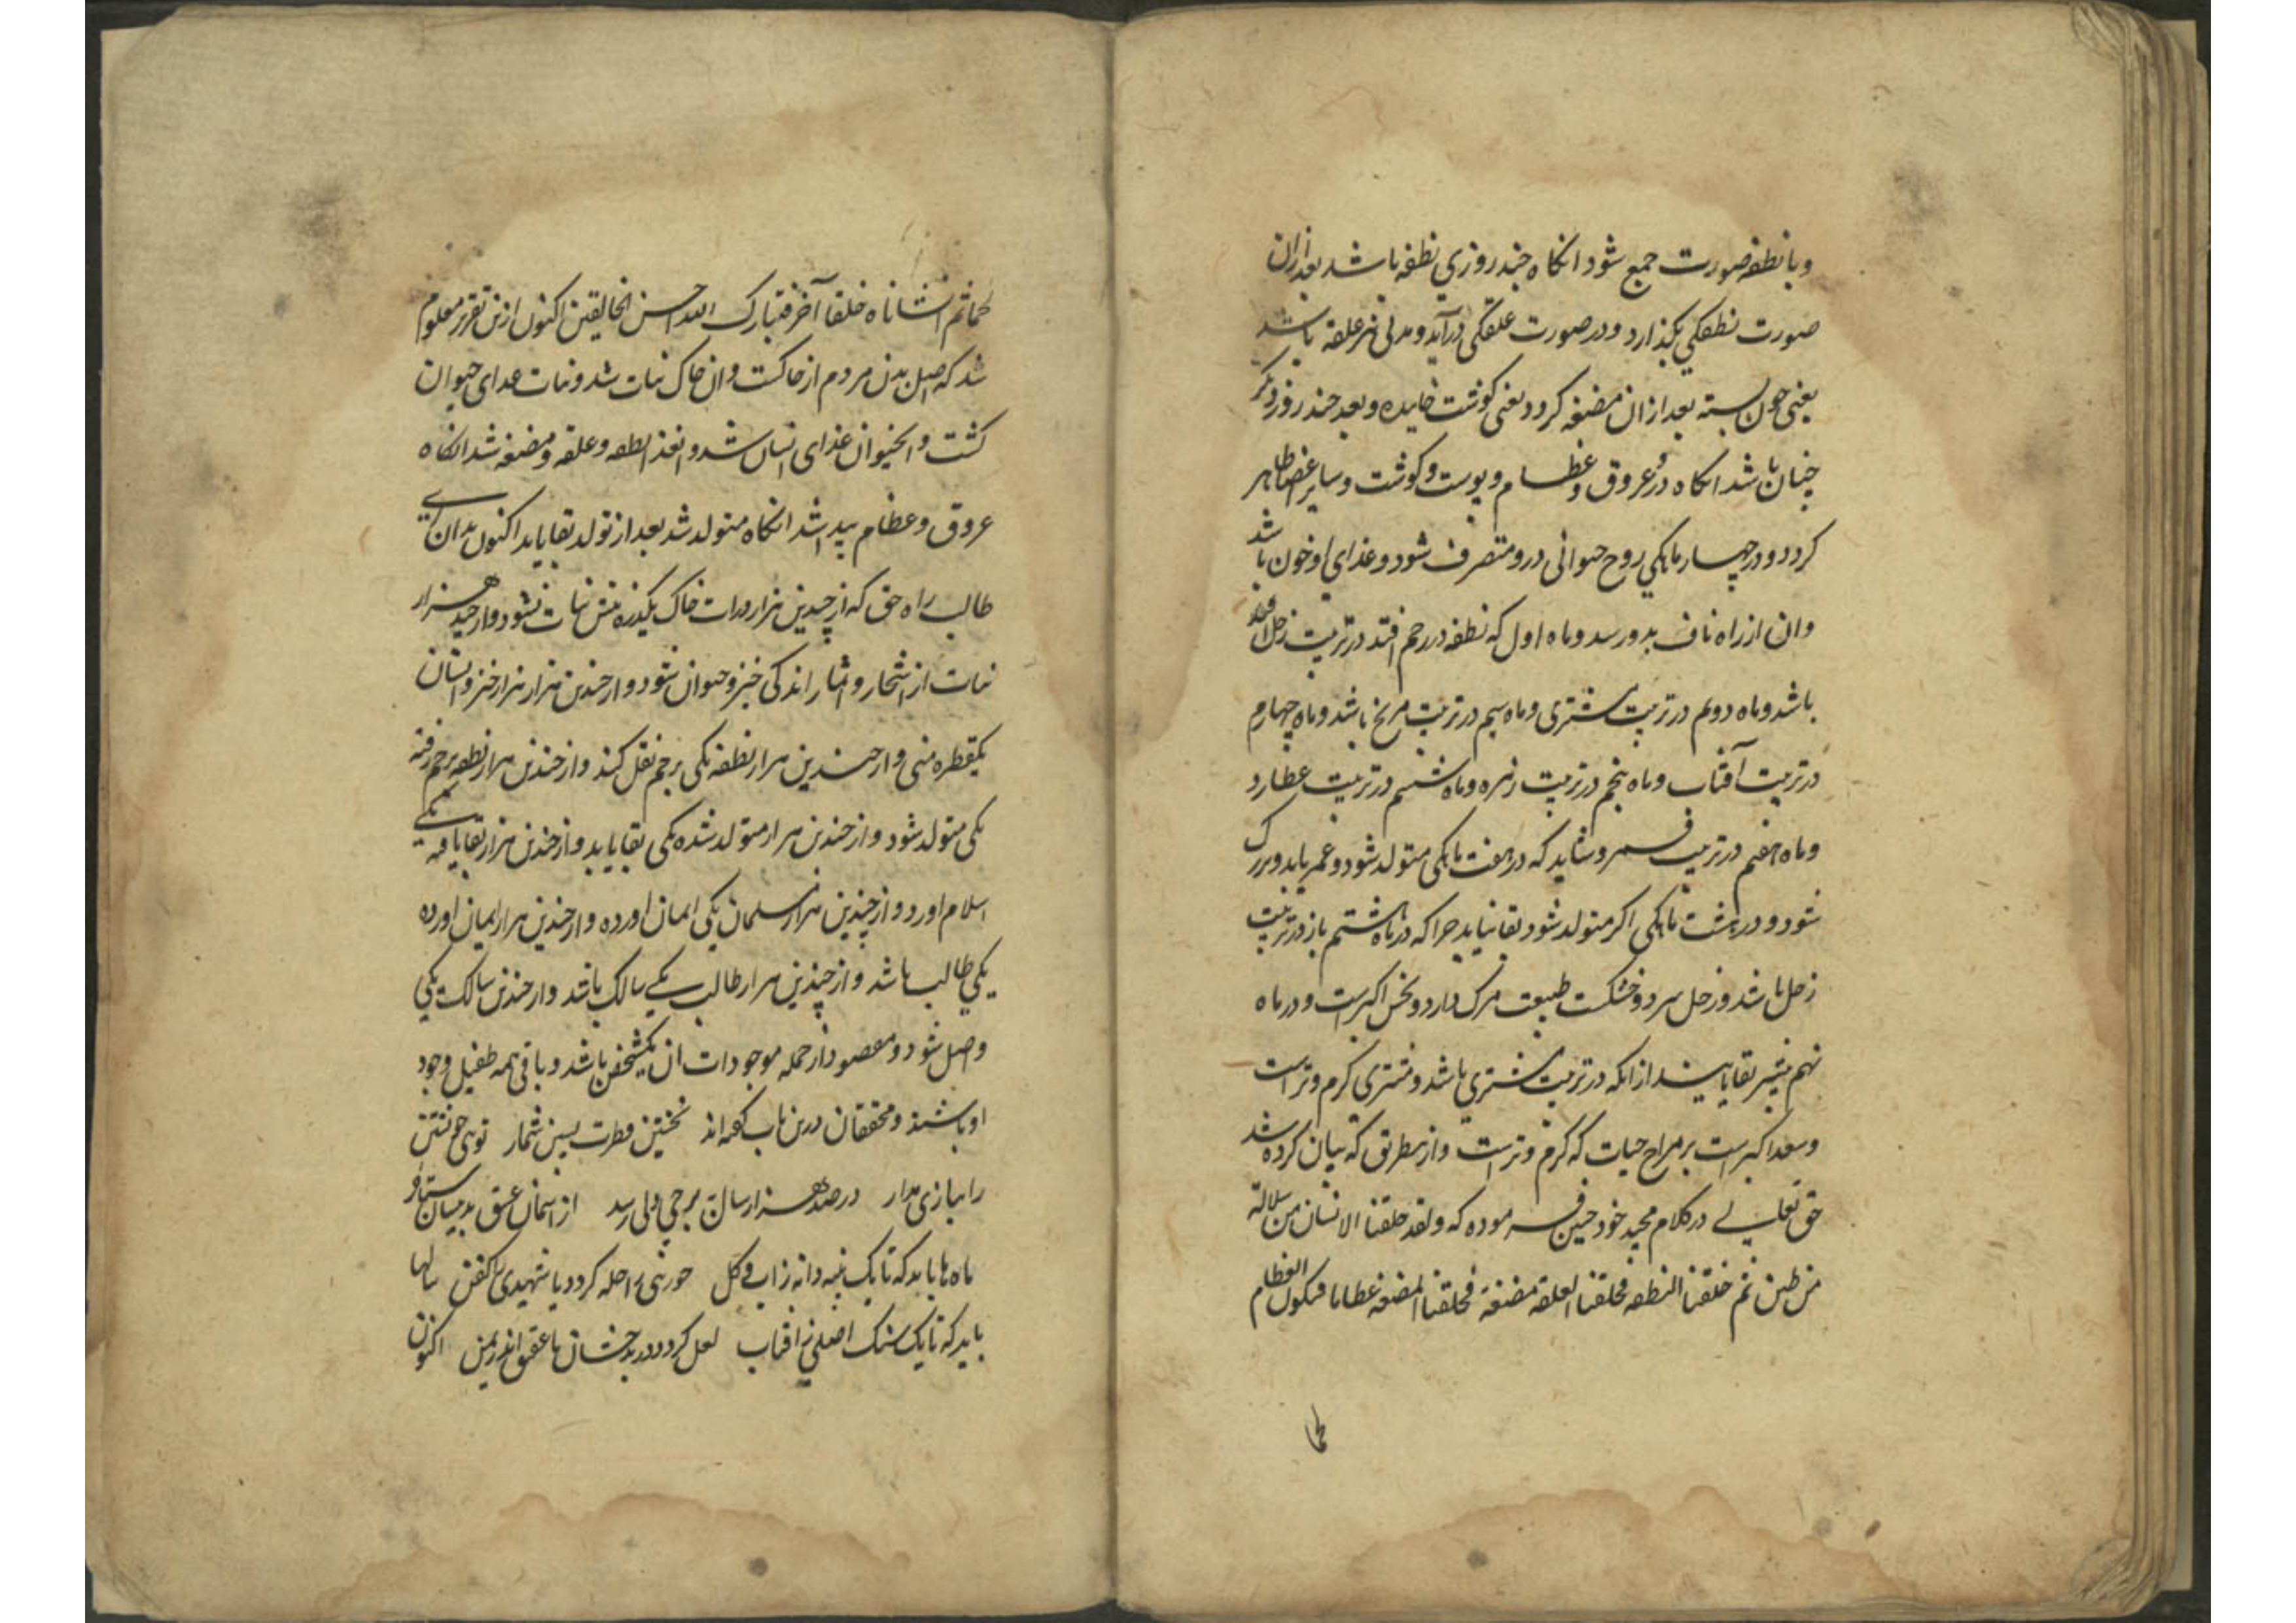 وبا نطفه صورت جمع شود انکاه چند روزی نطفه باشد بعد ازان
صورت نطفکی بکذارد ودر صورت علقکی درآید ومدتی نیز علقه باشد
یعنی خون بسته بعد ازان مضغه کردد یعنی کوشت خاییده وبعد چند روز دیکر
چنان باشد انکاه درو عروق وعظام وپوست وکوشت وسایر اعضا ظاهر
کردد ودر چهار ماهکی روح حیوانی درو متصرف شود وغذای او خون باشد
وان از راه ناف بدو رسد وماه اول که نطفه در رحم افتد در تربیت زحل
باشد وماه دوم در تربیت مشتری وماه سیم در تربیت مریخ باشد وماه چهارم
در تربیت آفتاب وماه پنجم در تربیت زهره وماه ششم در تربیت عطارد
وماه هفتم در تربیت قمر وشاید که در هفت ماهکی متولد شود وعمر یابد وبزرک
شود ودر هشت ماهکی اکر متولد شود بقا نیابد چرا که در ماه هشتم باز در تربیت
زحل باشد وزحل سرد وخشکست طبیعت مرک دارد ونحس اکبرست ودر ماه
نهم بیشتر بقا یابند از انکه در تربیت مشتری باشد ومشتری کرم وتر است
وسعد اکبرست بر مزاج حیات که کرم وترست واز بنطریق که بیان کرده شد
حق تعالی در کلام مجید خود چنین فرموده که ولقد خلقنا الانسان من سلالة
من طین ثم خلقنا النطفه فخلقنا العلقة مضغة فخلقنا المضغه عظاما فکسونا العظام
لحما
لحما ثم انشاناه خلقا آخر فتبارک الله احسن الخالقین اکنون ازین تقریر معلوم
شد که اصل بدن مردم از خاکست وان خاک نبات شد ونبات غذای حیوان
کشت وانحیوان غذای انسان شد وانغذا نطفه وعلقه ومضغه شد انکاه
عروق وعظام پیدا شد انکاه متولد شد بعد از تولد بقا یابد اکنون بدان ای
طالب راه حق که از چندین هزار ذرات خاک یکذره بیش نبات نشود واز چند هزار
نبات از اشجار واثمار اندکی جزو حیوان شود واز چندین هزار هزار جزو انسان
یکقطره منی واز چندین هزار نطفه یکی برحم نقل کند واز چندین هزار نطفه برحم رفته
یکی متولد شود واز چندین هزار متولد شده یکی بقا یابد واز چندین هزار بقا یافته یکی
اسلام اورد واز چندین هزار مسلمان یکی ایمان اورده واز چندین هزار ایمان اورده
یکی طالب باشد واز چندین هزار طالب یکی سالک باشد واز چندین سالک یکی
واصل شود ومقصود از جمله موجودات ان یکشخص باشد وباقی همه طفیل وجود
او باشند ومحققان درین باب کفته اند نخستین فطرت پسین شمار توی خویشتن
را ببازی مدار در صد هزار سال برجی ولی رسد از اسمان عشق بدینسان ستاره
ماه ها باید که تا یک پنبه دانه زاب وکل حوری را حله کردد یا شهیدی را کفن سالها
باید که تا یک سنک اصلی ز افتاب لعل کردد در بدخشان یا عقیق اندر یمن اکنون